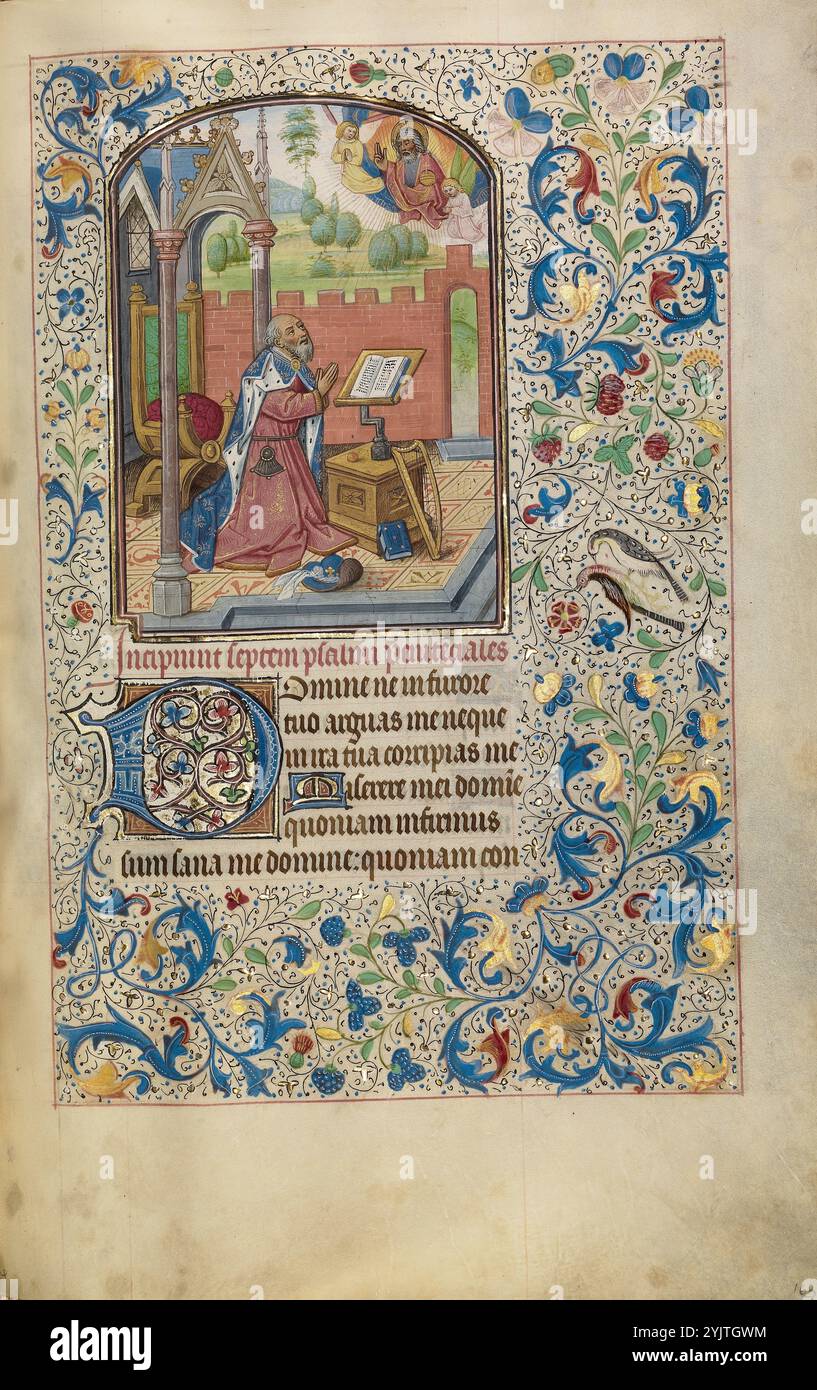 Incipiunt septem psalmi penitenciales
Domine ne in furore
tuo arguas me neque
in ira tua corripias me
Miserere mei domine
quoniam infirmus
sum sana me domine: quoniam con
alamy
Image ID: 2YJTGWM
www.alamy.com